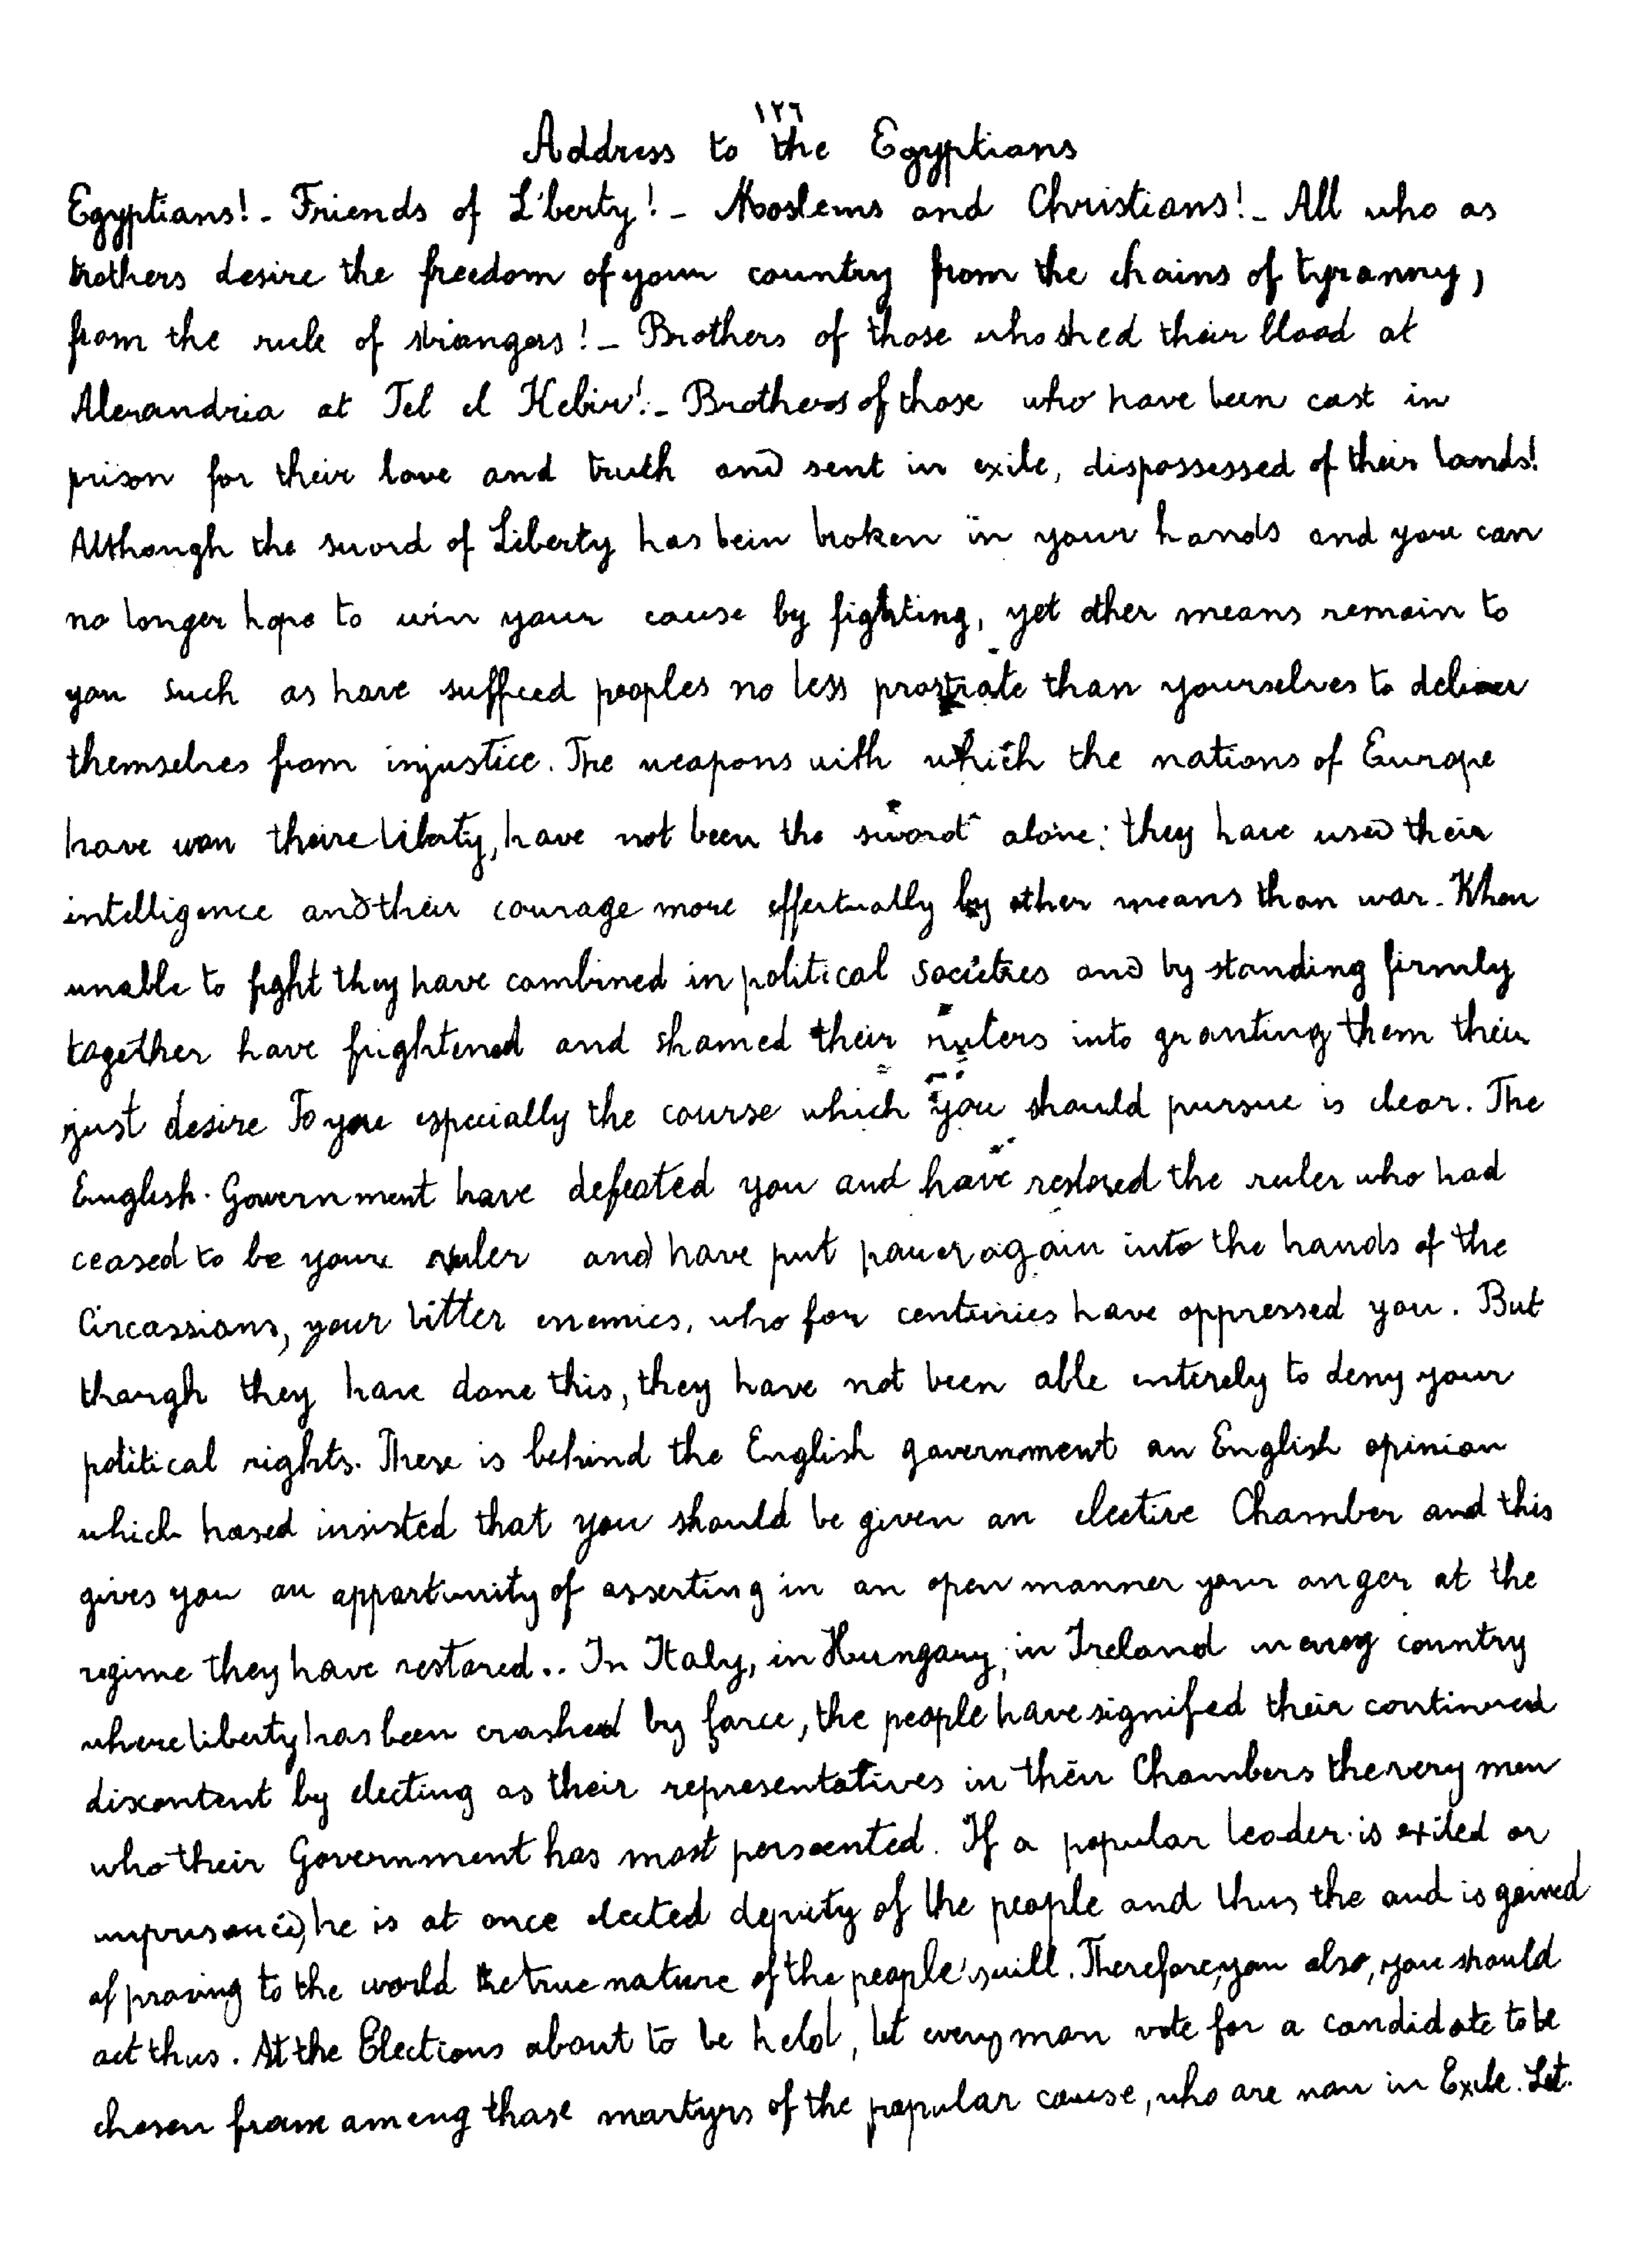 ١٢٦
Address to the Egyptians
Egyptians! - Friends of Liberty! - Moslems and Christians! - All who as
brothers desire the freedom of your country from the chains of tyranny,
from the rule of strangers! - Brothers of those who shed their blood at
Alexandria at Tel el Kebir! - Brothers of those who have been cast in
prison for their love and truth and sent in exile, dispossessed of their lands!
Although the sword of Liberty has bein broken in your hands and you can
no longer hope to win your cause by fighting, yet other means remain to
you such as have sufficed peoples no less prostrate than yourselves to deliver
themselves from injustice. The weapons with which the nations of Europe
have won theire liberty, have not been the sword alone: they have used their
intelligence and their courage more effectually by other means than war. When
unable to fight they have combined in political societies and by standing firmly
together have frightened and shamed their rulers into granting them their
just desire To you especially the course which you should pursue is clear. The
English. Government have defeated you and have restored the ruler who had
ceased to be your ruler and have put power again into the hands of the
Circassians, your bitter enemies, who for centuries have oppressed you. But
though they have done this, they have not been able enterely to deny your
political rights. There is behind the English government an English opinion
which hased insisted that you should be given an elective Chamber and this
gives you an opportunity of asserting in an open manner your anger at the
regime they have restored.. In Italy, in Hungary, in Ireland in every country
where liberty has been crashed by force, the people have signified their continued
discontent by electing as their representatives in their Chambers the very men
who their Government has most persecuted. If a popular leader is exiled or
imprisoned, he is at once elected deputy of the people and thus the aud is gained
of proving to the world the true nature of the people's will. Therefore, you also, you should
act thus. At the Elections about to be held, let every man vote for a candidate to be
chosen from among those martyrs of the popular cause, who are now in Exile. Let.